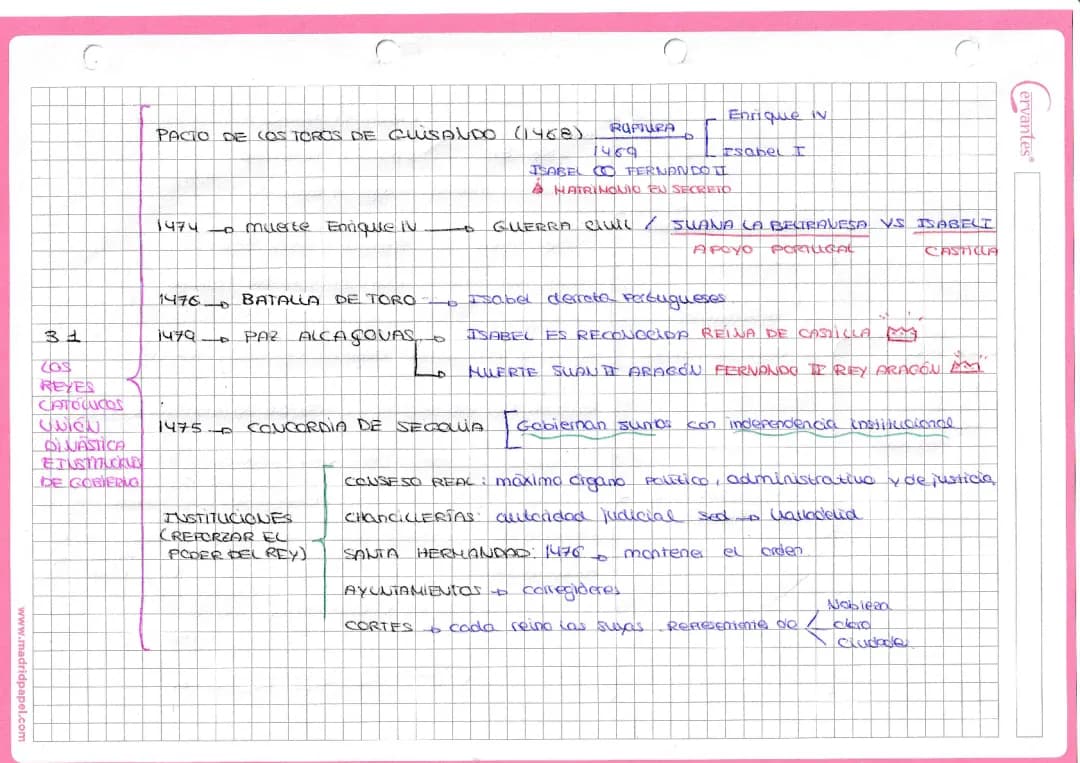 PACTO DE LOS TOROS DE GUISANDO (1468) RUPTURA Enrique IV
Isabel I
1469
ISABEL FERNANDO II
MATRIMONIO EN SECRETO
1474 muerte Enrique IV GUERRA CIVIL / JUANA LA BELTRANESA VS ISABEL I
APOYO PORTUGAL CASTILLA
1476 BATALLA DE TORO Isabel derrota Portugueses
1479 PAZ ALCAÇOVAS ISABEL ES RECONOCIDA REINA DE CASTILLA
MUERTE JUAN II ARAGÓN FERNANDO II REY ARAGÓN
3 1
LOS
REYES
CATÓLICOS
UNIÓN
DINÁSTICA
E INSTITUCIONES
DE GOBIERNO
1475 CONCORDIA DE SEGOVIA [Gobiernan juntos con independencia institucional
INSTITUCIONES
(REFORZAR EL
PODER DEL REY)
CONSEJO REAL: máximo órgano político, administrativo y de justicia
CHANCILLERÍAS: autoridad judicial sed Valladolid
SANTA HERMANDAD: 1476 mantener el orden
AYUNTAMIENTOS corregidores
CORTES cada reino las suyas. Representante de
Nobleza
clero
ciudades
Cervantes®
www.madridpapel.com